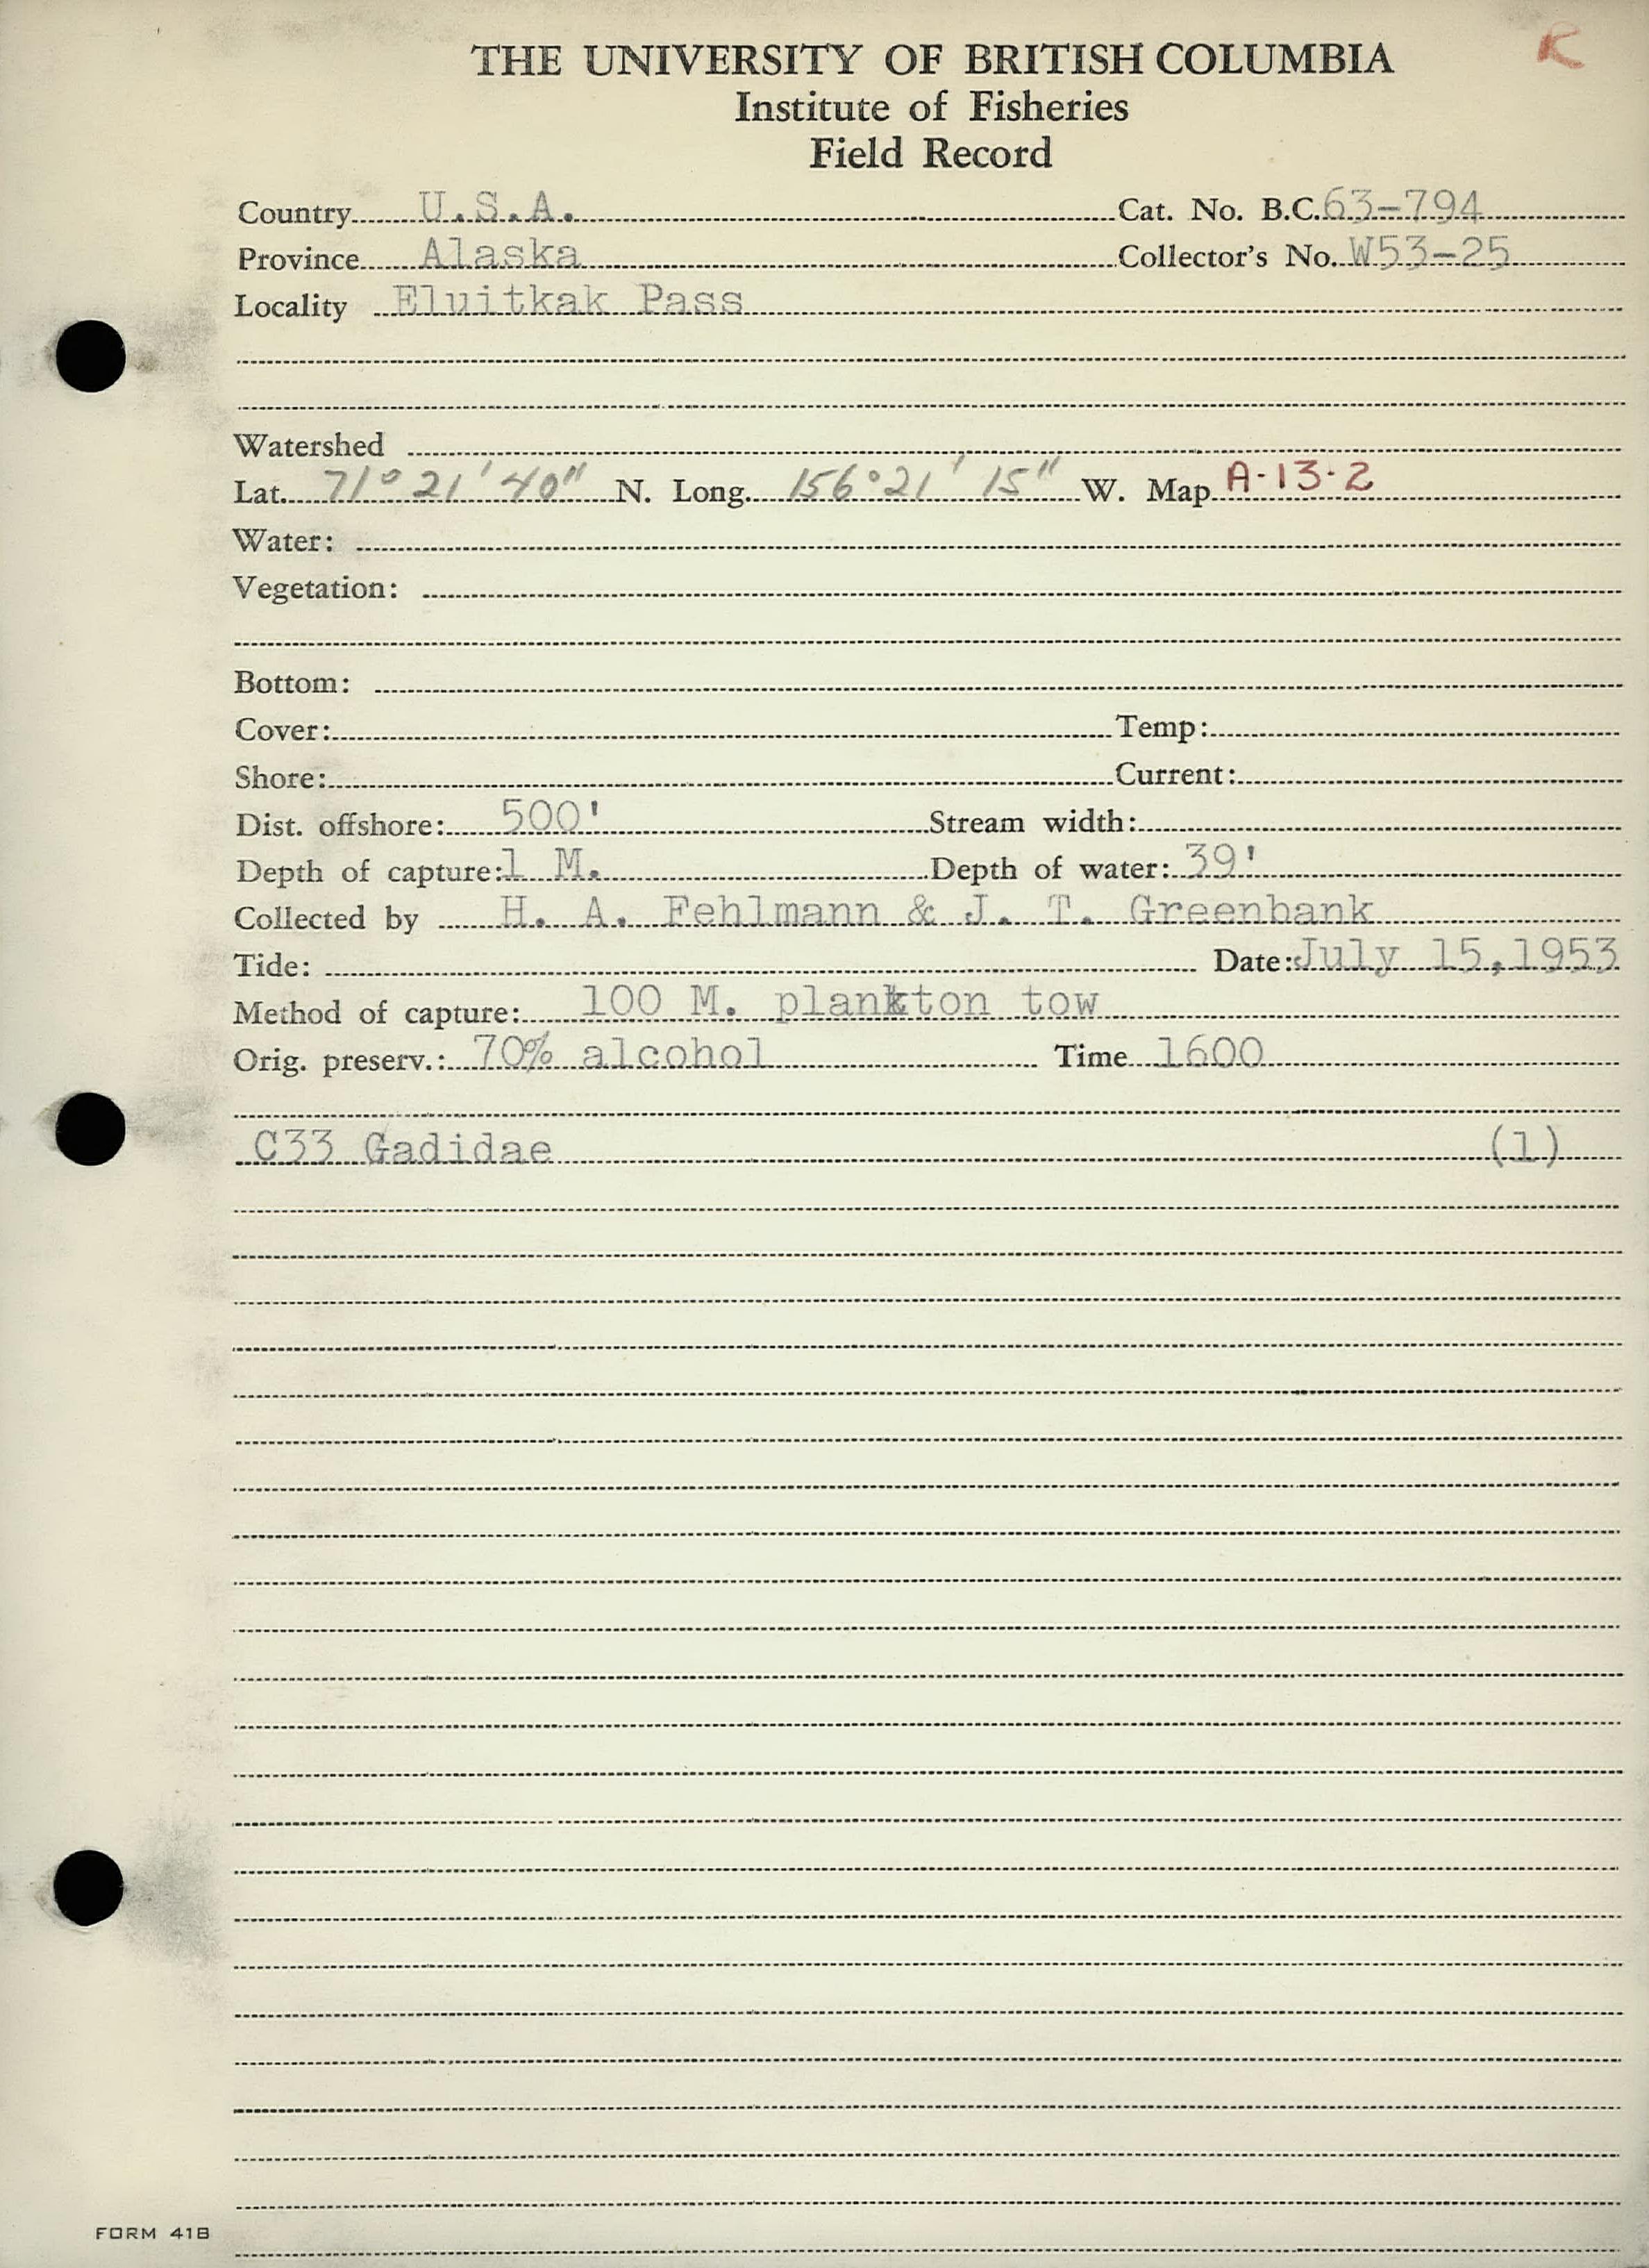 K
THE UNIVERSITY OF BRITISH COLUMBIA
Institute of Fisheries
Field Record
Country U.S.A. Cat. No. B.C. 63-794
Province Alaska Collector's No. W53-25
Locality Eluitkak Pass
Watershed
Lat. 71° 21' 40" N. Long. 156° 21' 15" W. Map A-13-2
Water:
Vegetation:
Bottom:
Cover: Temp:
Shore: Current:
Dist. offshore: 500' Stream width:
Depth of capture: 1 M. Depth of water: 39'
Collected by H. A. Fehlmann & J. T. Greenbank
Tide: Date: July 15, 1953
Method of capture: 100 M. plankton tow
Orig. preserv.: 70% alcohol Time 1600
C33 Gadidae (1)
FORM 41B